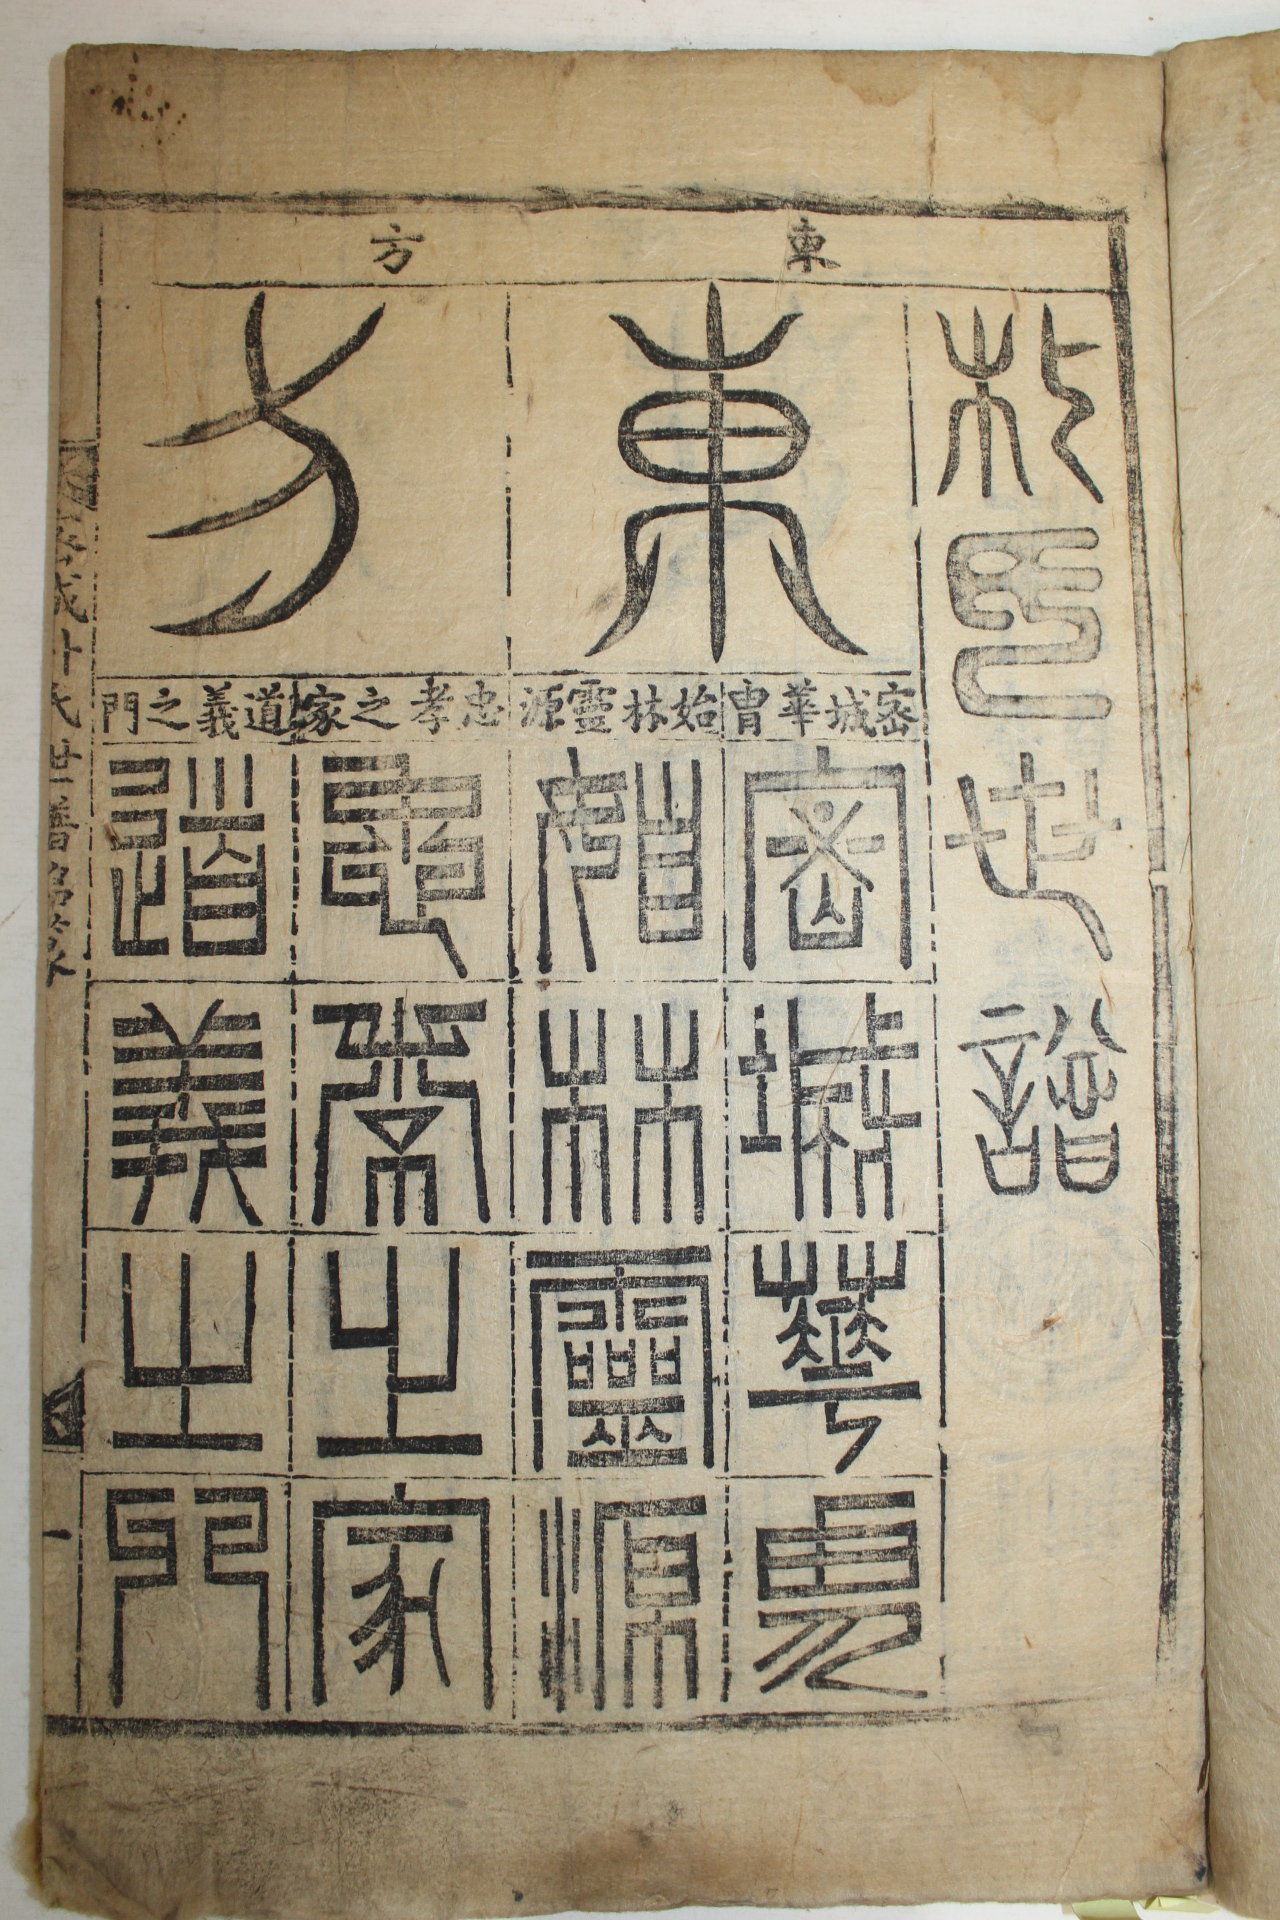 朴氏世譜
東方
東
方
密城華冑始林靈源忠孝之家道義之門
密城華冑
始林靈源
忠孝之家
道義之門
密城朴氏世譜
一